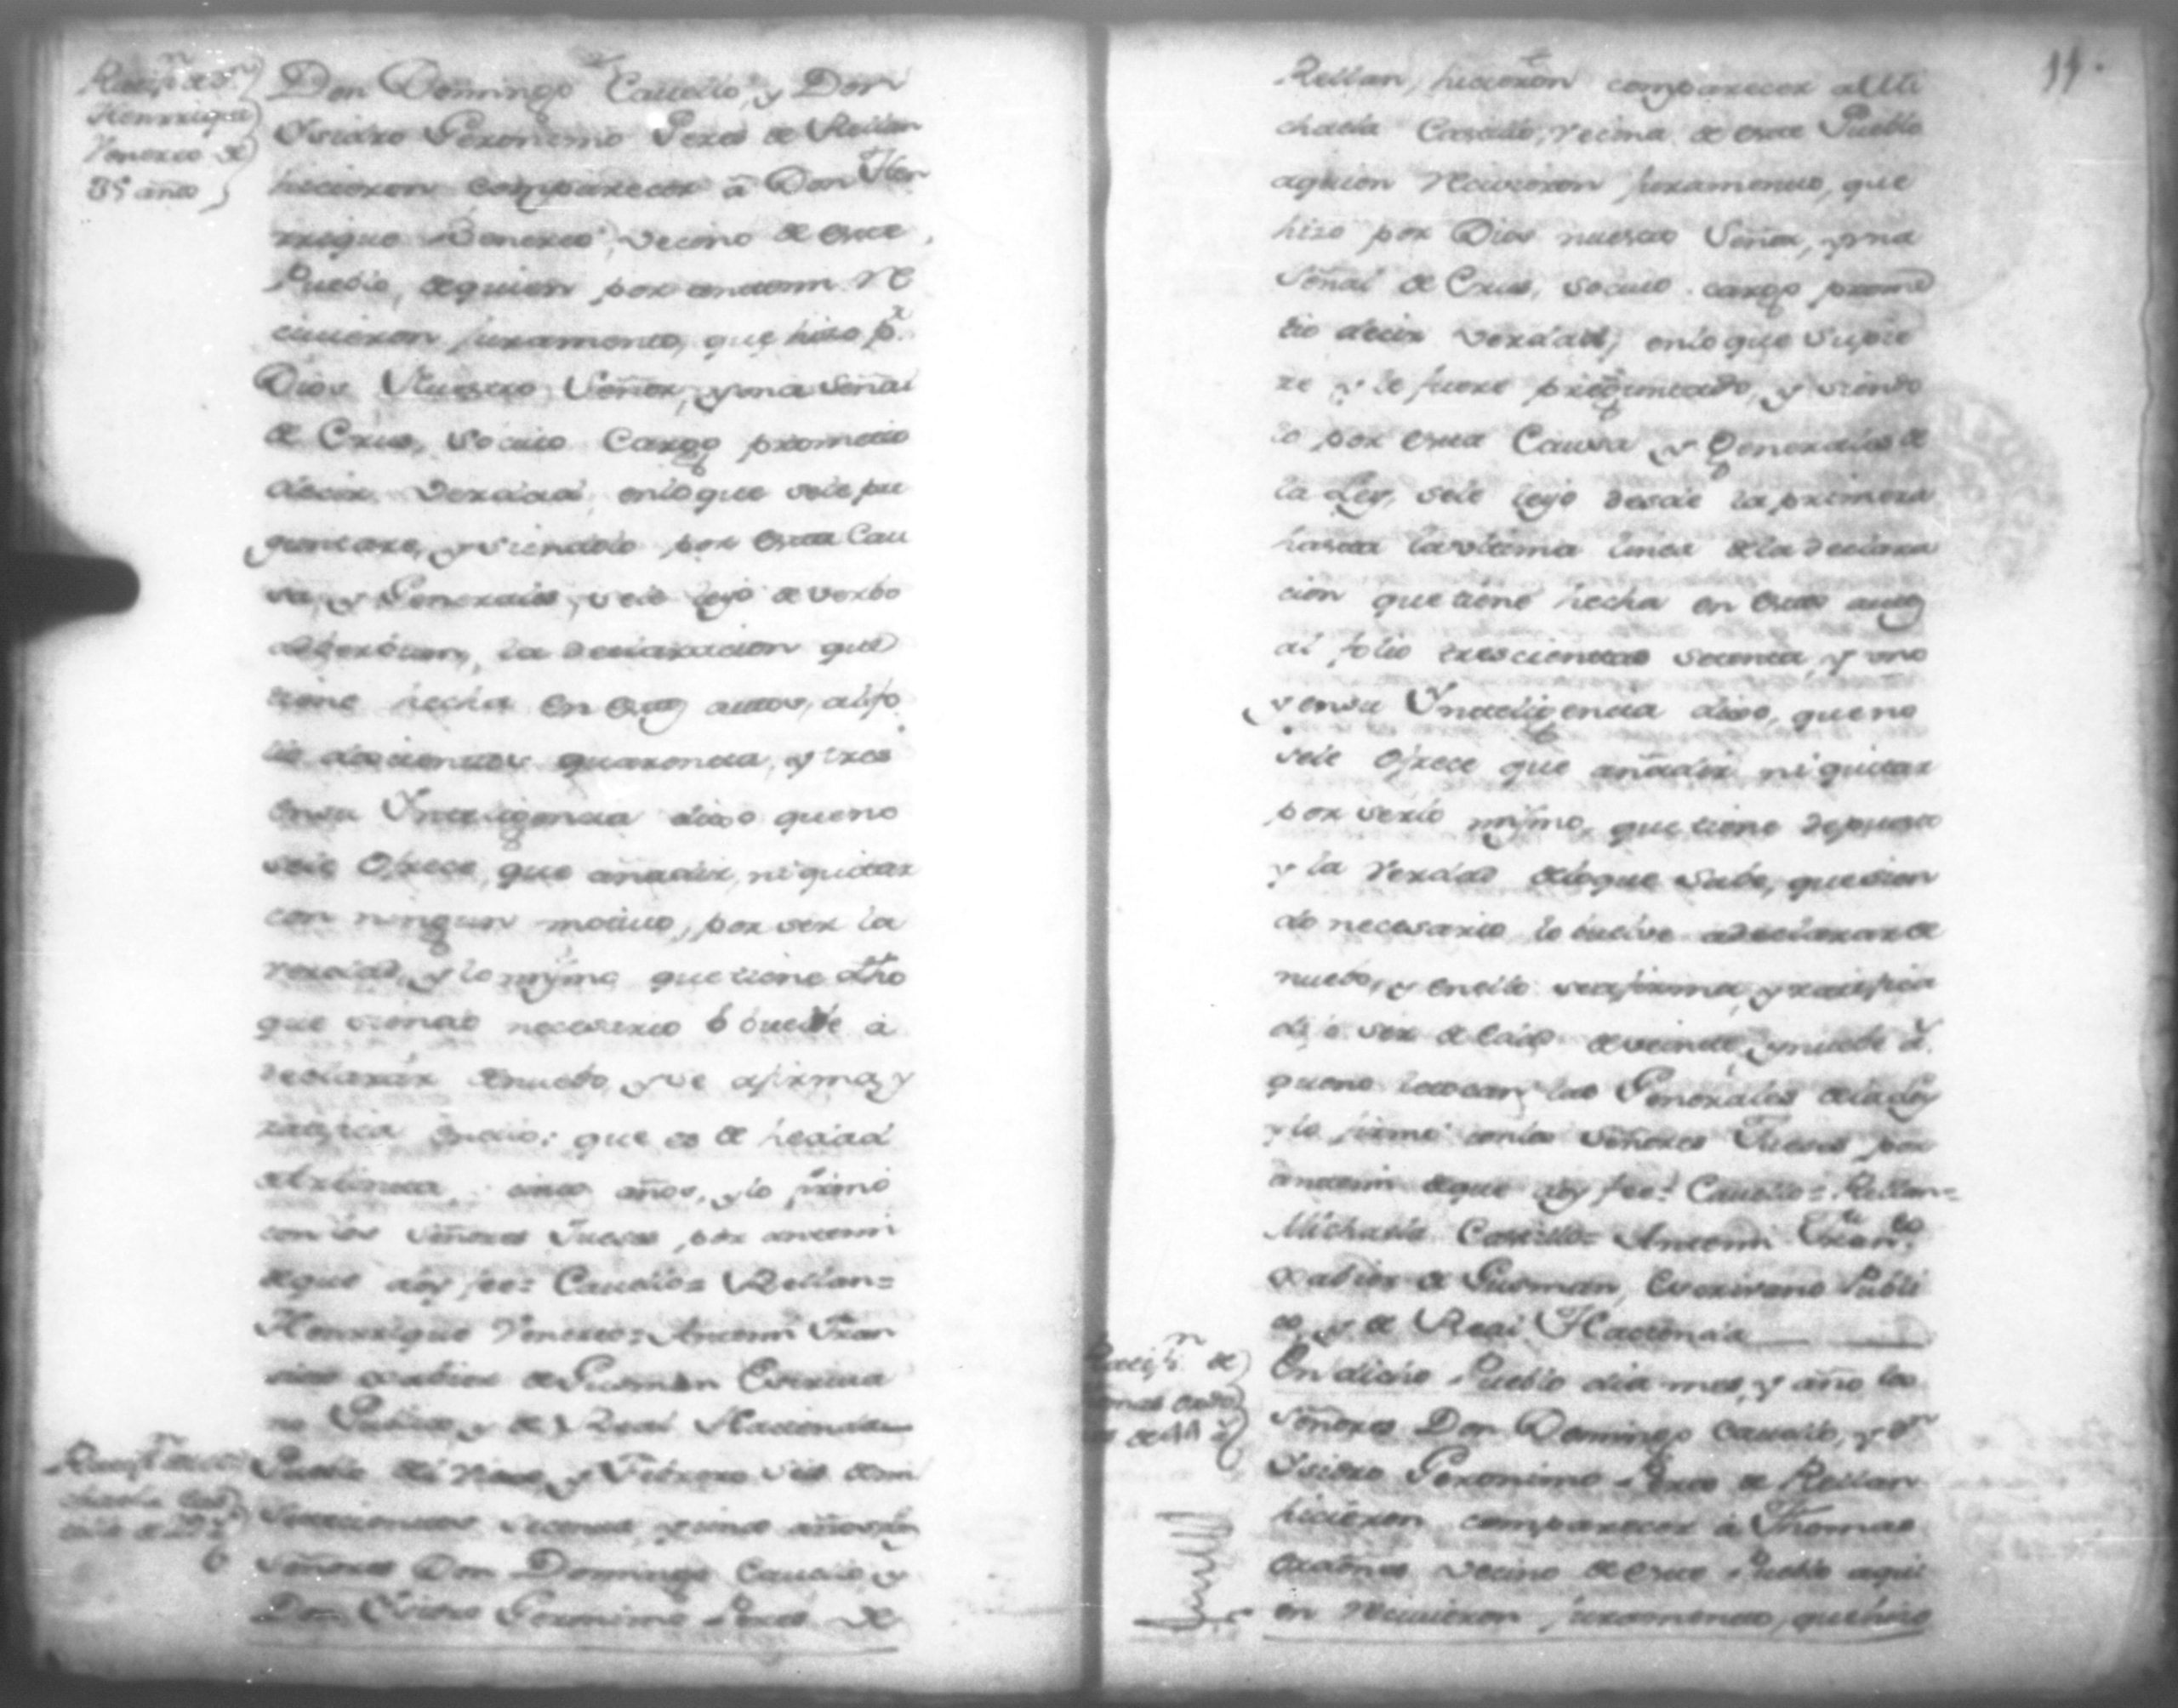 Ratifon de Dn
Henrrique
Venereo de
35 años
Don Domingo Cauello, y Don
Ysidro Geronimo Peres de Rellan
hicieron comparecer â Don Hen
rrique Venereo, vecino de este
Pueblo, de quien por antemi re
ciuieron juramento, que hizo pr
Dios Nuestro Señor, y una Señal
de Crus, so cuio Cargo prometio
decir verdad, enlo que sele pre
guntare, y siendolo por esta Cau
sa, y Generales, sele leyo de verbo
adverbum, la declaracion que
tiene hecha en estos autos, al fo
lio docientos quarenta, y tres
ensu Ynteligencia dixo que no
sele Ofrece, que añadir, ni quitar
con ningun motiuo, por ser la
verdad, y lo mysmo que tiene dho
que siendo necesario buelbe â
declarár de nuebo, y se afirma, y
ratifica en ello: que es de hedad
de treinta, cinco años, y lo firmó
con los Señores Jueces, por antemi
de que doy fee= Cauello= Rellan=
Henrrique Venereo= Antemi Fran
cisco Xabier de Gusman Escriua
no Publico, y de Real Hacienda
Pueblo del y Febrero seis de mil
Setecientos Setenta, y años los
Señores Don Domingo Cauello, y
Don Ysidro Geronimo Peres de
11.
Rellan, hicieron comparecer a Mi
chaela Castillo, vecina de este Pueblo
aquien reciuieron juramento, que
hizo por Dios nuestro Señor, y una
Señal de Crus, so cuio cargo prome
tio decir verdad, enlo que supie
re y le fuere preguntado, y siendo
lo por esta Causa y Generales de
la Ley, sele leyo desde la primera
hasta la vltima linea dela declara
cion que tiene hecha en estos autos
al folio trescientos setenta, y uno
y ensu Ynteligencia dixo, que no
sele Ofrece que añadir, ni quitar
por serlo mysmo, que tiene depuesto
y la Verdad delo que sabe, que sien
do necesario lo buelve adeclarar de
nuebo, y en ello se afirma, y ratifica
de veinte, y nuebe a.
que no le tocan las Generales dela Ley
y lo firmó conlos Señores Jueces por
antemi de que doy fee= Cauello= Rellan=
Michaela Castillo= Antemi Franco
Xabier de Gusman, Escrivano Publi
co, y de Real Hacienda
Ratifn de
de 44 a
En dicho Pueblo dia mes, y año los
Señores Don Domingo Cauello, y Dn
Ysidro Geronimo Peres de Rellan
hicieron comparecer â Thomas
vecino de este Pueblo aqui
en reciuieron juramento, que hizo